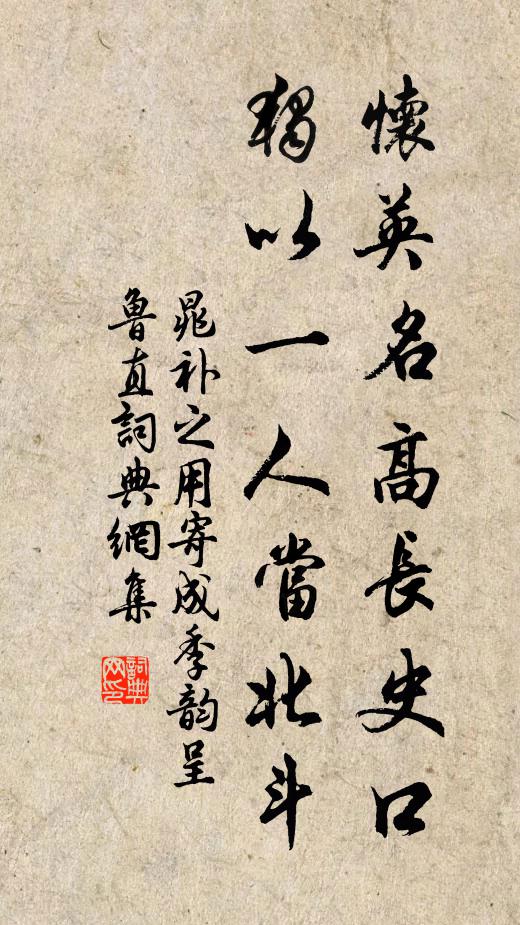 懷英名高長史口
獨以一人當北斗
晁补之用寄成季韵呈
魯直詞典網集
詞典
网印